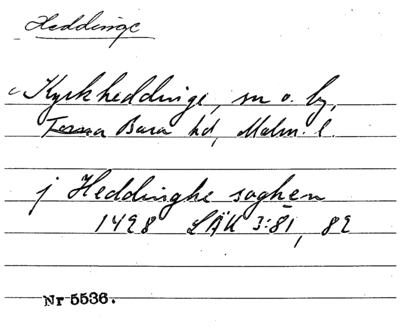 Heddinge
Kyrkheddinge, sn o. by,
Bara hd, Malm. l.
j Heddinghe soghen
1498 LÄU 3:81, 82
Nr 5536.